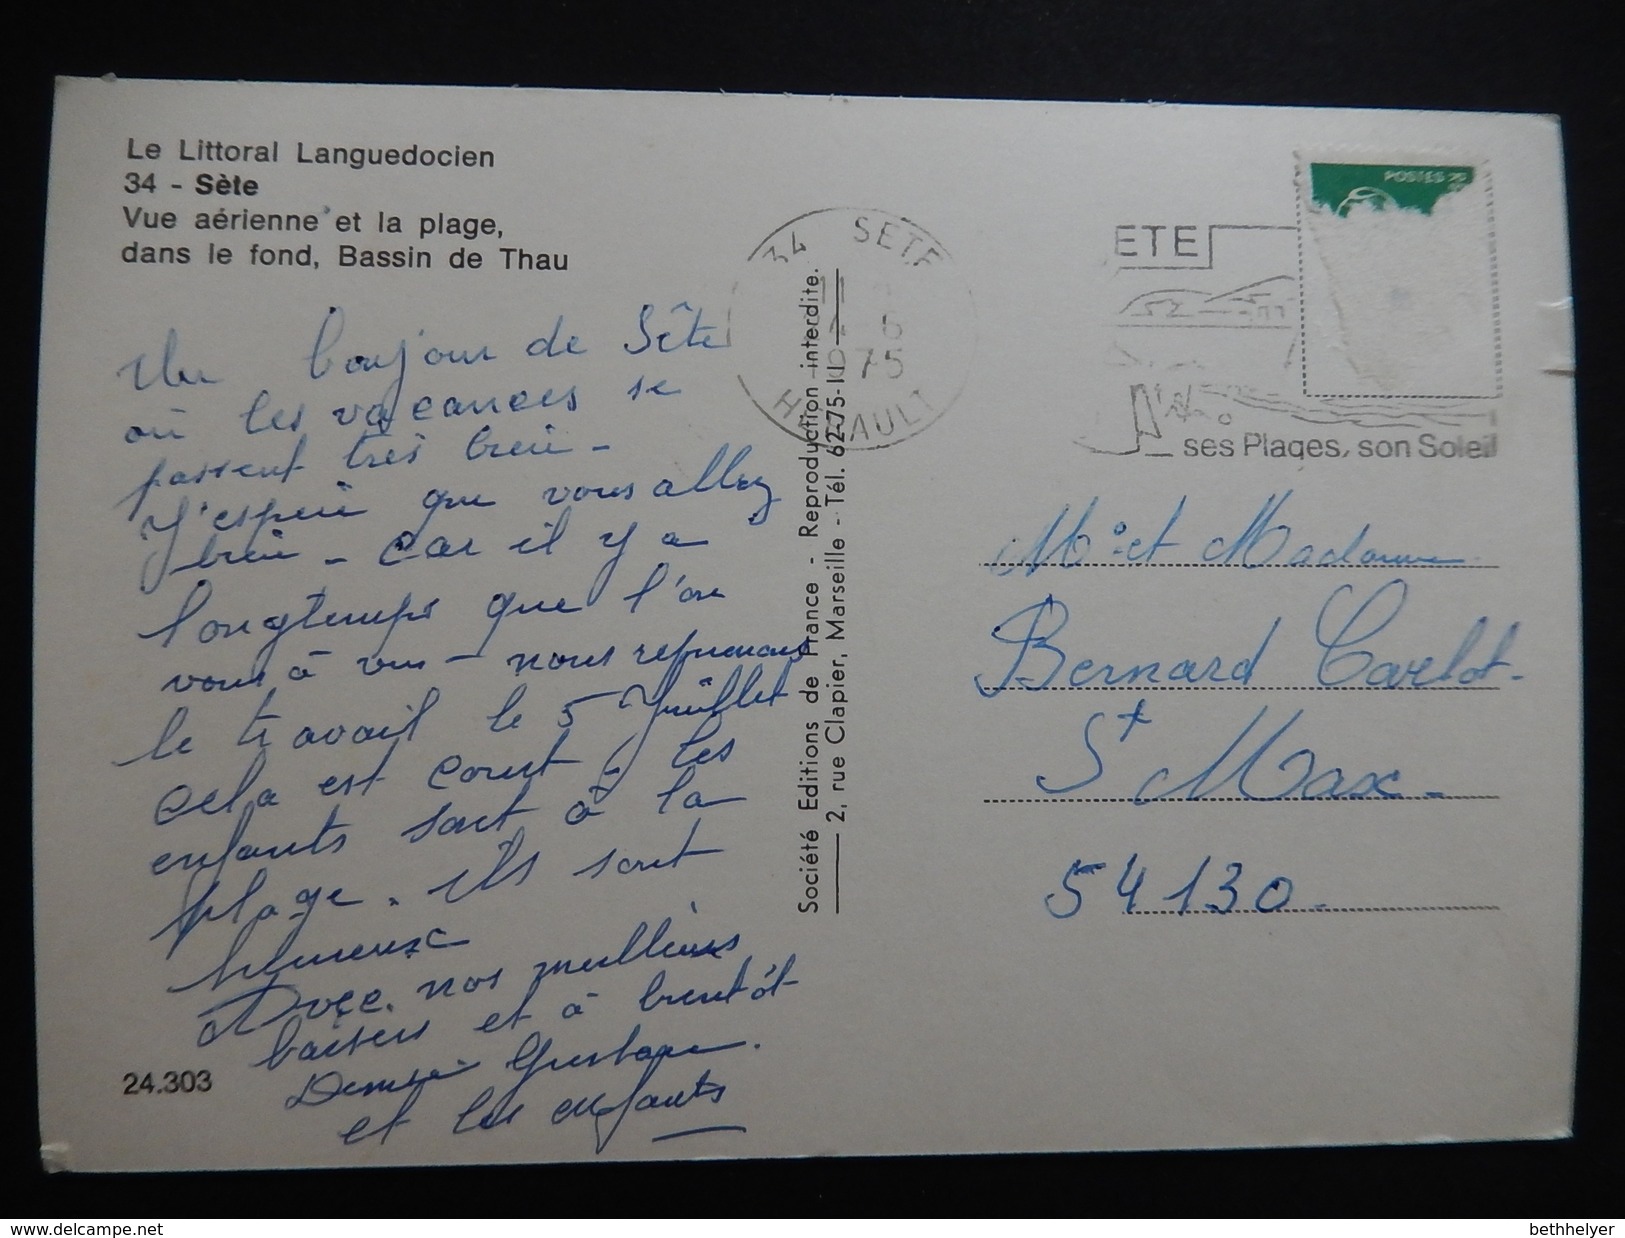 Le Littoral Languedocien
34 - Sète
Vue aérienne et la plage,
dans le fond, Bassin de Thau
Un bonjour de Sète
où les vacances se
passent très bien -
J'espère que vous allez
bien - car il y a
longtemps que l'on
vous à vu - nous reprenons
le travail le 5 Juillet
cela est court - les
enfants sont à la
plage. ils sont
heureux
Avec nos meilleurs
baisers et à bientôt
Gustave.
et les enfants
24.303
Société Editions de France - Reproduction interdite.
2, rue Clapier, Marseille - Tél. 62-75-11
34 SETE
1975
HERAULT
ETE
ses Plages, son Soleil
POSTES
Mr et Madame
Bernard Carlot.
St Max.
54130.
bethhelyer